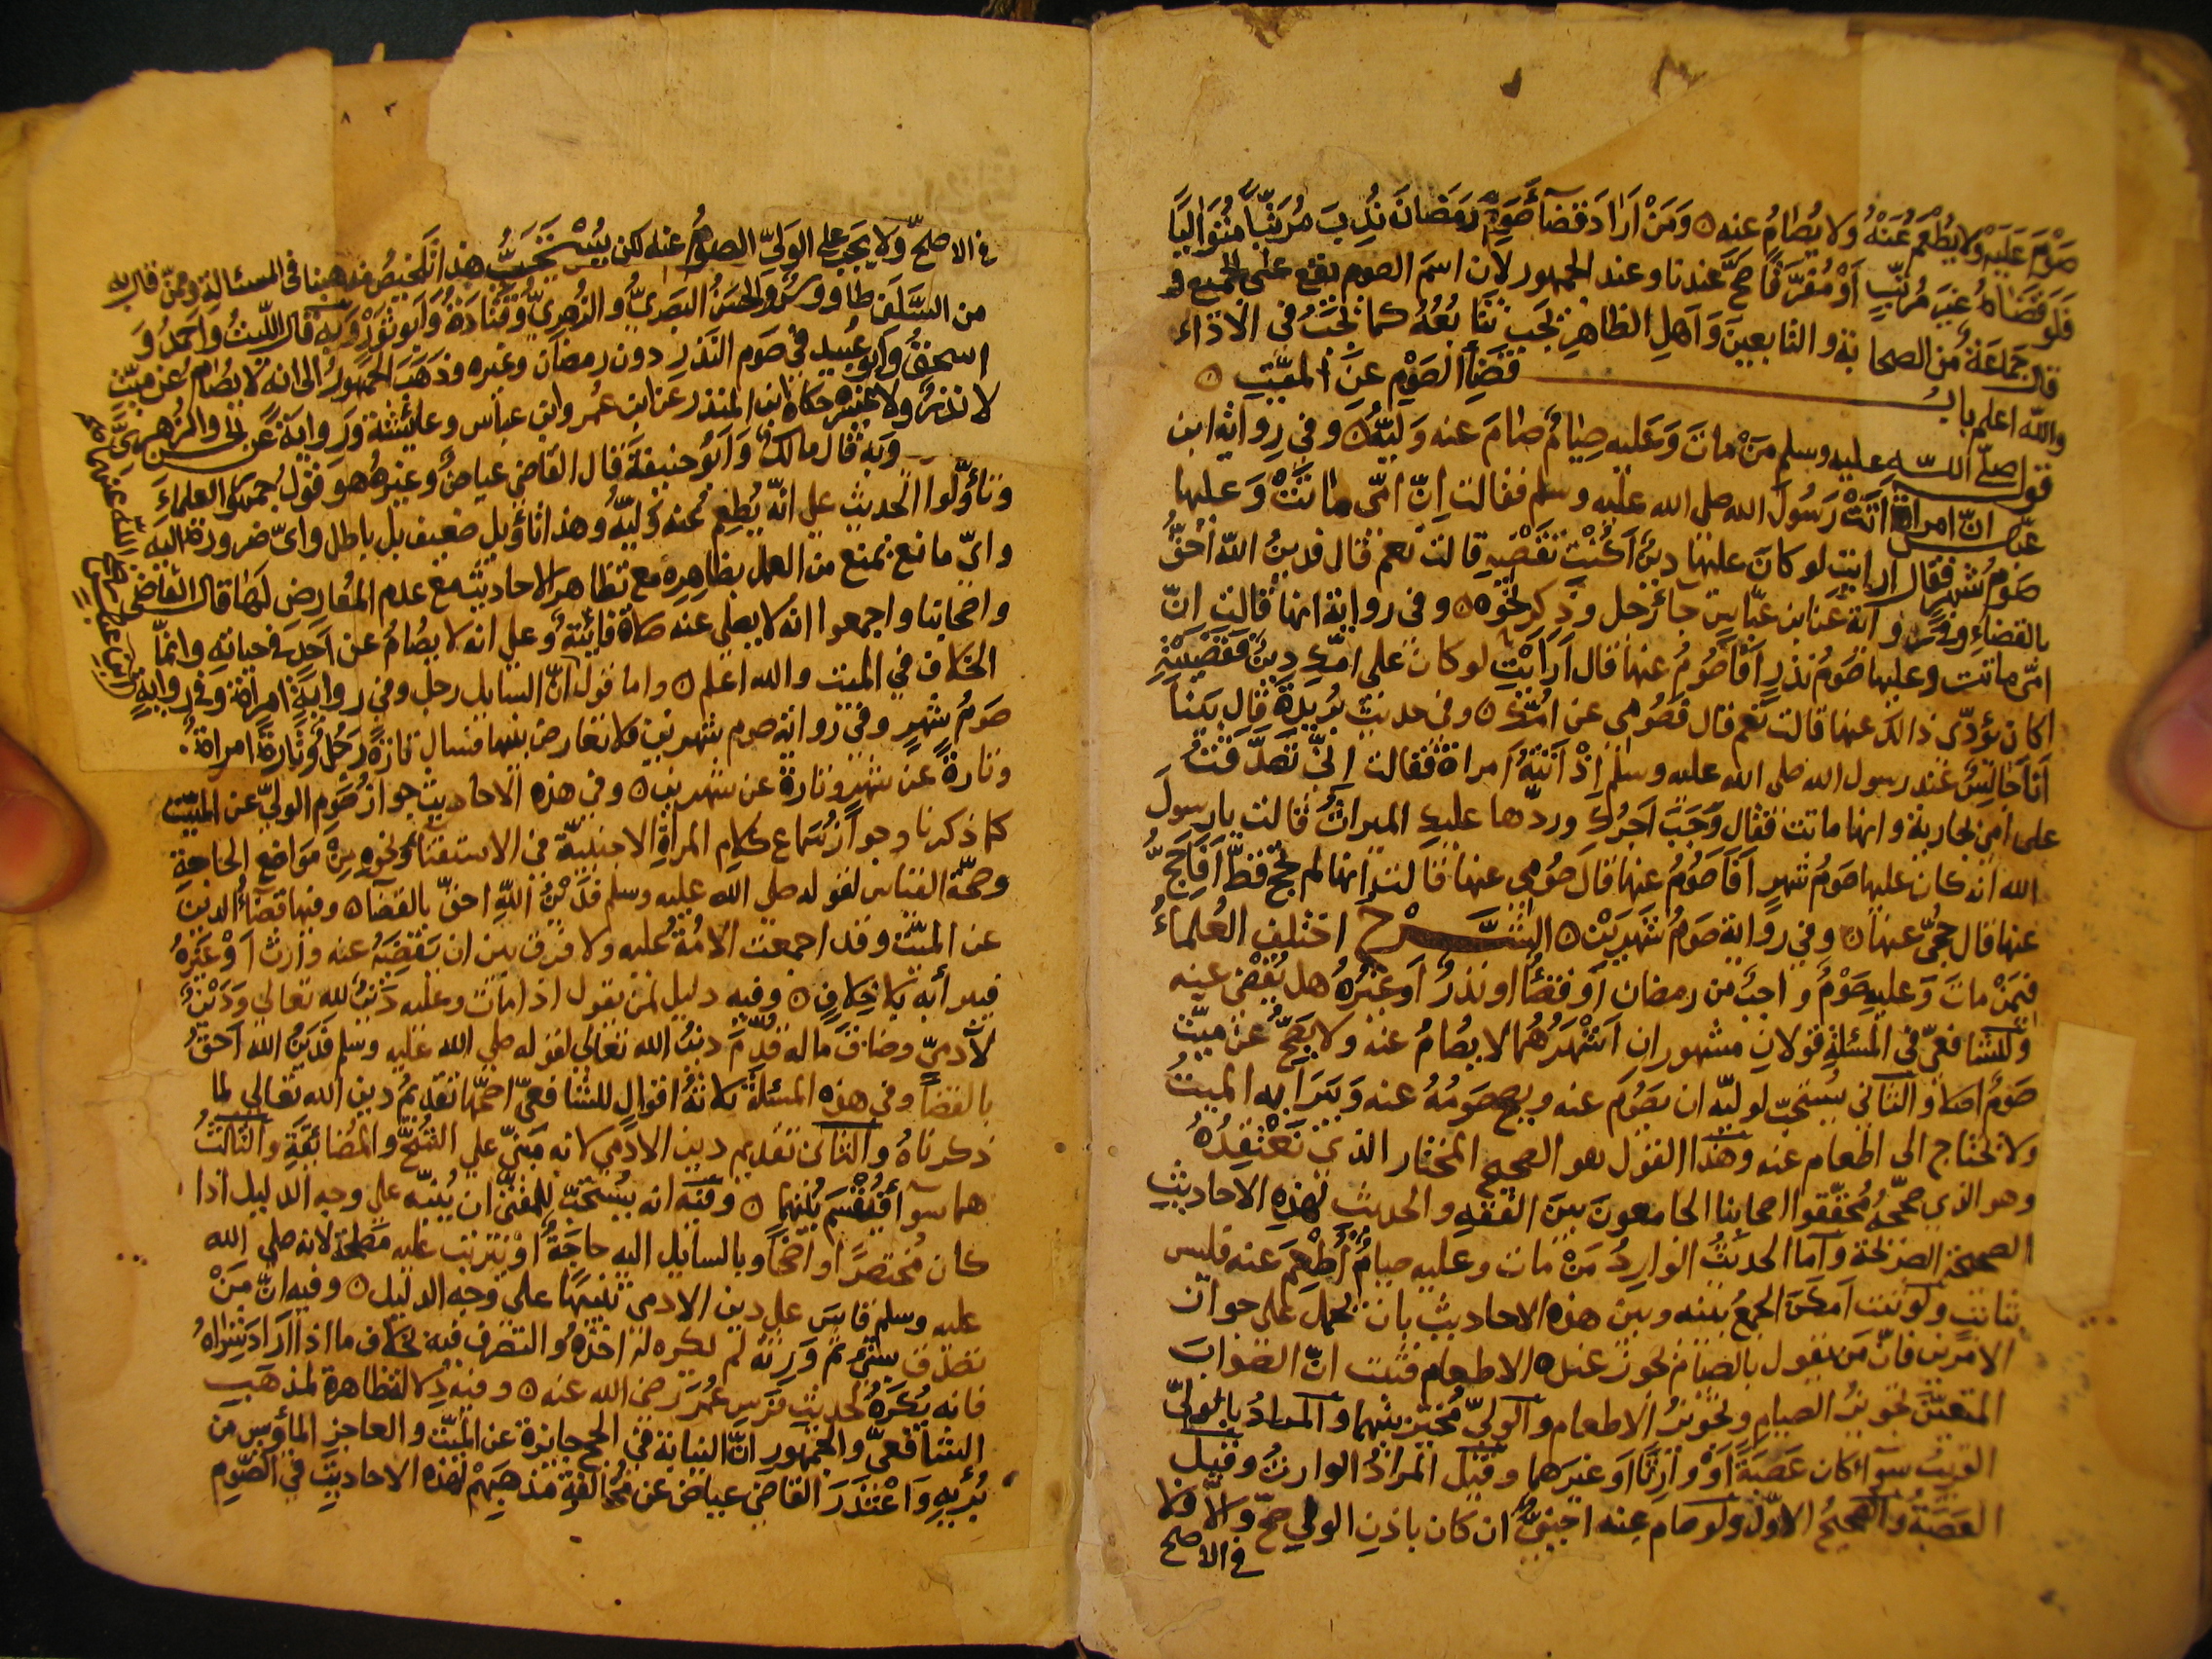 صَوْمَ عَلَيْهِ ولا يُطْعَمُ عَنْهُ ولا يُصَامُ عنه ۝ وَمَنْ اَرَادَ قضآءَ صَوْمِ رَمَضَانَ نُدِبَ مُرَتَّباً مُتَوَالِيًا
فَلَو قَضَاهُ غيرَ مُرَتَّبٍ اَوْ مُفَرَّقًا صَحَّ عندنا وعند الجمهور لان اسمَ الصوم يقع على الجميع و
قال جَمَاعَةٌ من الصحابة والتابعينَ وَاَهلِ الظاهرِ يجب تتابُعُهُ كما يجَبُ فى الاَدَاء
والله اعلم باب قَضَآءِ الصَّوْمِ عَنِ المَيّتِ ۝
قول صلّى اللّه عليه وسلم مَنْ ماتَ وَعَليه صِيَامٌ صَامَ عنه وَليّهُ ۝ وفى رواية ابن
عبّاس انّ امراة اتَتْ رَسُولَ الله صلى الله عليه وسلم فقالت اِنّ امّى ماتَتْ وَعليها
صَومُ شهْرٍ فقال ارايتِ لو كانَ عليها دينٌ اَكُنْتِ تَقْضِيهِ قالت نعم قال فدينُ اللّه اَحَقُّ
بالقضاءِ وفى روايَة عَن ابن عبّاسٍ جآءَ رَجل وذكر نحوَه ۝ وفى رواية انها قالت اِنّ
امّى ماتت وعليها صَوم نَذرٍ اَفَاَصُومُ عنها قال اَرَاَيْتِ لو كانَ على امّكِ دينٌ فَقَضَيْتِهِ
اكان يُؤدّى ذالك عنها قالت نعم قال فصُومى عن امّكِ ۝ وفى حديث بُرَيدَةَ قال بَيْنا
اَنَا جالِسٌ عند رسول الله صلى الله عليه وسلم اِذْ اَتَتْهُ امراة فقالت اِنّى تَصَدّقتُ
على امّى بجارية وانها ماتت فقال وَجَبَ اَجرُكِ وردّها عليكِ الميراثُ قالت يارسولَ
الله انه كان عليها صَومُ شَهرٍ اَفَاَصُومُ عنها قال صُومى عنها قالت انها لم تحج قطّ اَفَاَحجُّ
عنها قال حُجّى عنها ۝ وفي رواية صَومُ شَهرَينْ ۝ الشَّرحُ اختلف العُلماءُ
فيمَنْ ماتَ وَعليه صَوْمٌ واجبٌ من رمضان اَو قضآءٌ او نذرٌ اوغيرُهُ هل يُقضى عنه
وللشافعىّ فى المسئلة قولانِ مشهورانِ اَشْهَرُهُمَا لا يُصَامُ عنه ولا يَصحّ عن ميّتٍ
صَومٌ اصلاً والثاني يُستحبّ لوليّه ان يَصُومَ عنه ويصح صَومُهُ عنه وَيَبَرَا به الميتُ
ولا يحتاج الى اطعام عنه وهَذا القَول هو الصحيح المختار الذى نَعْتقِدُهُ
وهو الذى صَحّحَهُ مُحقّقوا اصحابنا الجامعونَ بَينَ الفقه والحديث لهذِهِ الاحاديثِ
الصحيحة الصرّيحة وَاَمّا الحديثُ الوارِدُ مَنْ ماتَ وعليه صيامٌ اُطْعِمَ عنه فليس
بثابتٍ ولو ثبت امكنَ الجمعُ بينه وبين هذه الاحاديث بان تُحمل على جواز
الامرَين فانّ مَن يَقول بالصيَام يجوز عنده الاطعام فثبت انّ الصَوابَ
المتعيّنَ تجويزُ الصيامِ وتجويزُ الاطعام والوليّ مُخيّر بينهما والمرادُ بالوليّ
القريبُ سوآء كان عَصَبَةً اَوْ وارثًا او غيرَهما وقيل المرادُ الوارثُ وقيل
العَصَبَةُ والصحيحُ الاَوّل ولوصام عنه اجنبيٌّ ان كان باذن الولي صَحّ والاّ فلا
في الاصح
في الاصحّ ولا يَجب على الوَلِيّ الصومُ عنه لكن يُسْتَحَبُّ هذا تَلخيصُ مذهبنا فى المسئالة وممّن قال به
من السَّلَفِ طاووس والحسَن البَصرىُّ والزُهرىُّ وقَتادَةُ وَابوثَورْ وَبهِ قال اللّيثُ واَحمَدُ وَ
اسحقُ وَابوعُبيد فى صَوم النَذرِ دون رمضان وغيره وذهَبَ الجمهورُ الى انه لا يُصَامُ عن ميّتٍ
لا نذرٌ ولا غيرُهُ حكاه ابن المنذر عن ابن عمر وابن عباس وعايشة وَرواية عَن الحسن والزهرىّ
وَبه قال مالكٌ وَاَبُو حنيفة قال القاضى عياضٌ وغيرهُ هو قول جُمهور العلماءَ
وتأوَّلوا الحديث على انّه يُطعِمُ عنه وَليّهُ وهذا تأوّيل ضعيف بل باطل واىّ ضرورة اليه
واىّ مانع يمنع من العمل بظاهِرِه مع تظاهر الاحاديث مع عدم المُعَارِضِ لَها قال القاضى
واصحابنا واجمعوا انه لا يصلى عنه صَلاة فايتَةٌ وعلى انه لا يصُامُ عن اَحَدٍ فى حياته وانمّا
الخلاف في الميت والله اعلم ۝ واما قول انّ السايل رجل وفي روايَة امراة وفي رواية
صَومُ شهرٍ وفى رواية صوم شهرين فلا تعارض بينها فسال تارَةً رَجُلٌ وتَارَةً امراة
وتارةً عن شهر وتارة عن شهرين ۝ وفي هذه الاحاديث جوازُ صَوم الوليّ عن الميّت
كما ذكرنا وجوازُ سَماع كلامِ المرأةِ الاجنبيّة في الاستفتآء ونحوه مِنْ مَوَاضع الحاجةِ
وصِحّة القياس لقوله صلى الله عليه وسلم فَدَيْنُ اللّهِ احقّ بالقضآء ۝ وفيها قَضآءُ الدين
عن الميّت وقد اجمعت الامُةُ عليه ولا فرق بين ان يَقضِيَهُ عنه وَارثُ اَوْغيرُهُ
فيبرأ به بلا خلافٍ ۝ وفيه دليل لمن يقول اذا مات وعليه دَينٌ لله تعالى وَدَيْنٌ
لآدَمِىٍّ وضاقَ مَاله قُدِّمَ دَينُ الله تعالى لقوله صلى الله عليه وسلم فَدَينُ الله احَقُّ
بالقضَآء وفي هذه المسئلة ثلاثَةُ اقوالٍ للشافعىّ اصحّها تقديمُ دين الله تعالى لما
ذكرناهُ والثانى تقديم دين الادمي لانه مَبنىٌّ على الشُّحِّ والمُضَايَقَةِ والثالثُ
هما سوآء فَيُقْسَم بَيْنهما ۝ وفيه انه يُستحَبّ للمفتى ان يُنبّه على وجه الدليل اذا
كان مُختصَرًا واضحًا وبالسايل اليه حاجَةٌ اَوْ يترتب عليه مَصلحة لانه صلى الله
عليه وسلم قاسَ على دين الادمى تنبيهًا على وَجه الدليل ۝ وفيه انّ مَنْ
تصدّق بشىءٍ ثم وَرِثَه لم يكره له اخذهُ والتصرف فيه بخلاف ما اذا اَرَادَ شِراهُ
فانه يُكرَهُ لحديثِ فَرَسِ عُمَرَ رضى الله عنه ۝ وفيه دِلالة ظاهرة لمذهَب
الشافعىّ والجمهور انّ النيابة في الحج جايزة عن الميّت والعاجز المأيوس من
بُرْيِهِ وَاعْتَذَرَ القاضى عياض عن مُخالفة مذهبَهمْ لهذه الاحاديثِ في الصّومِ